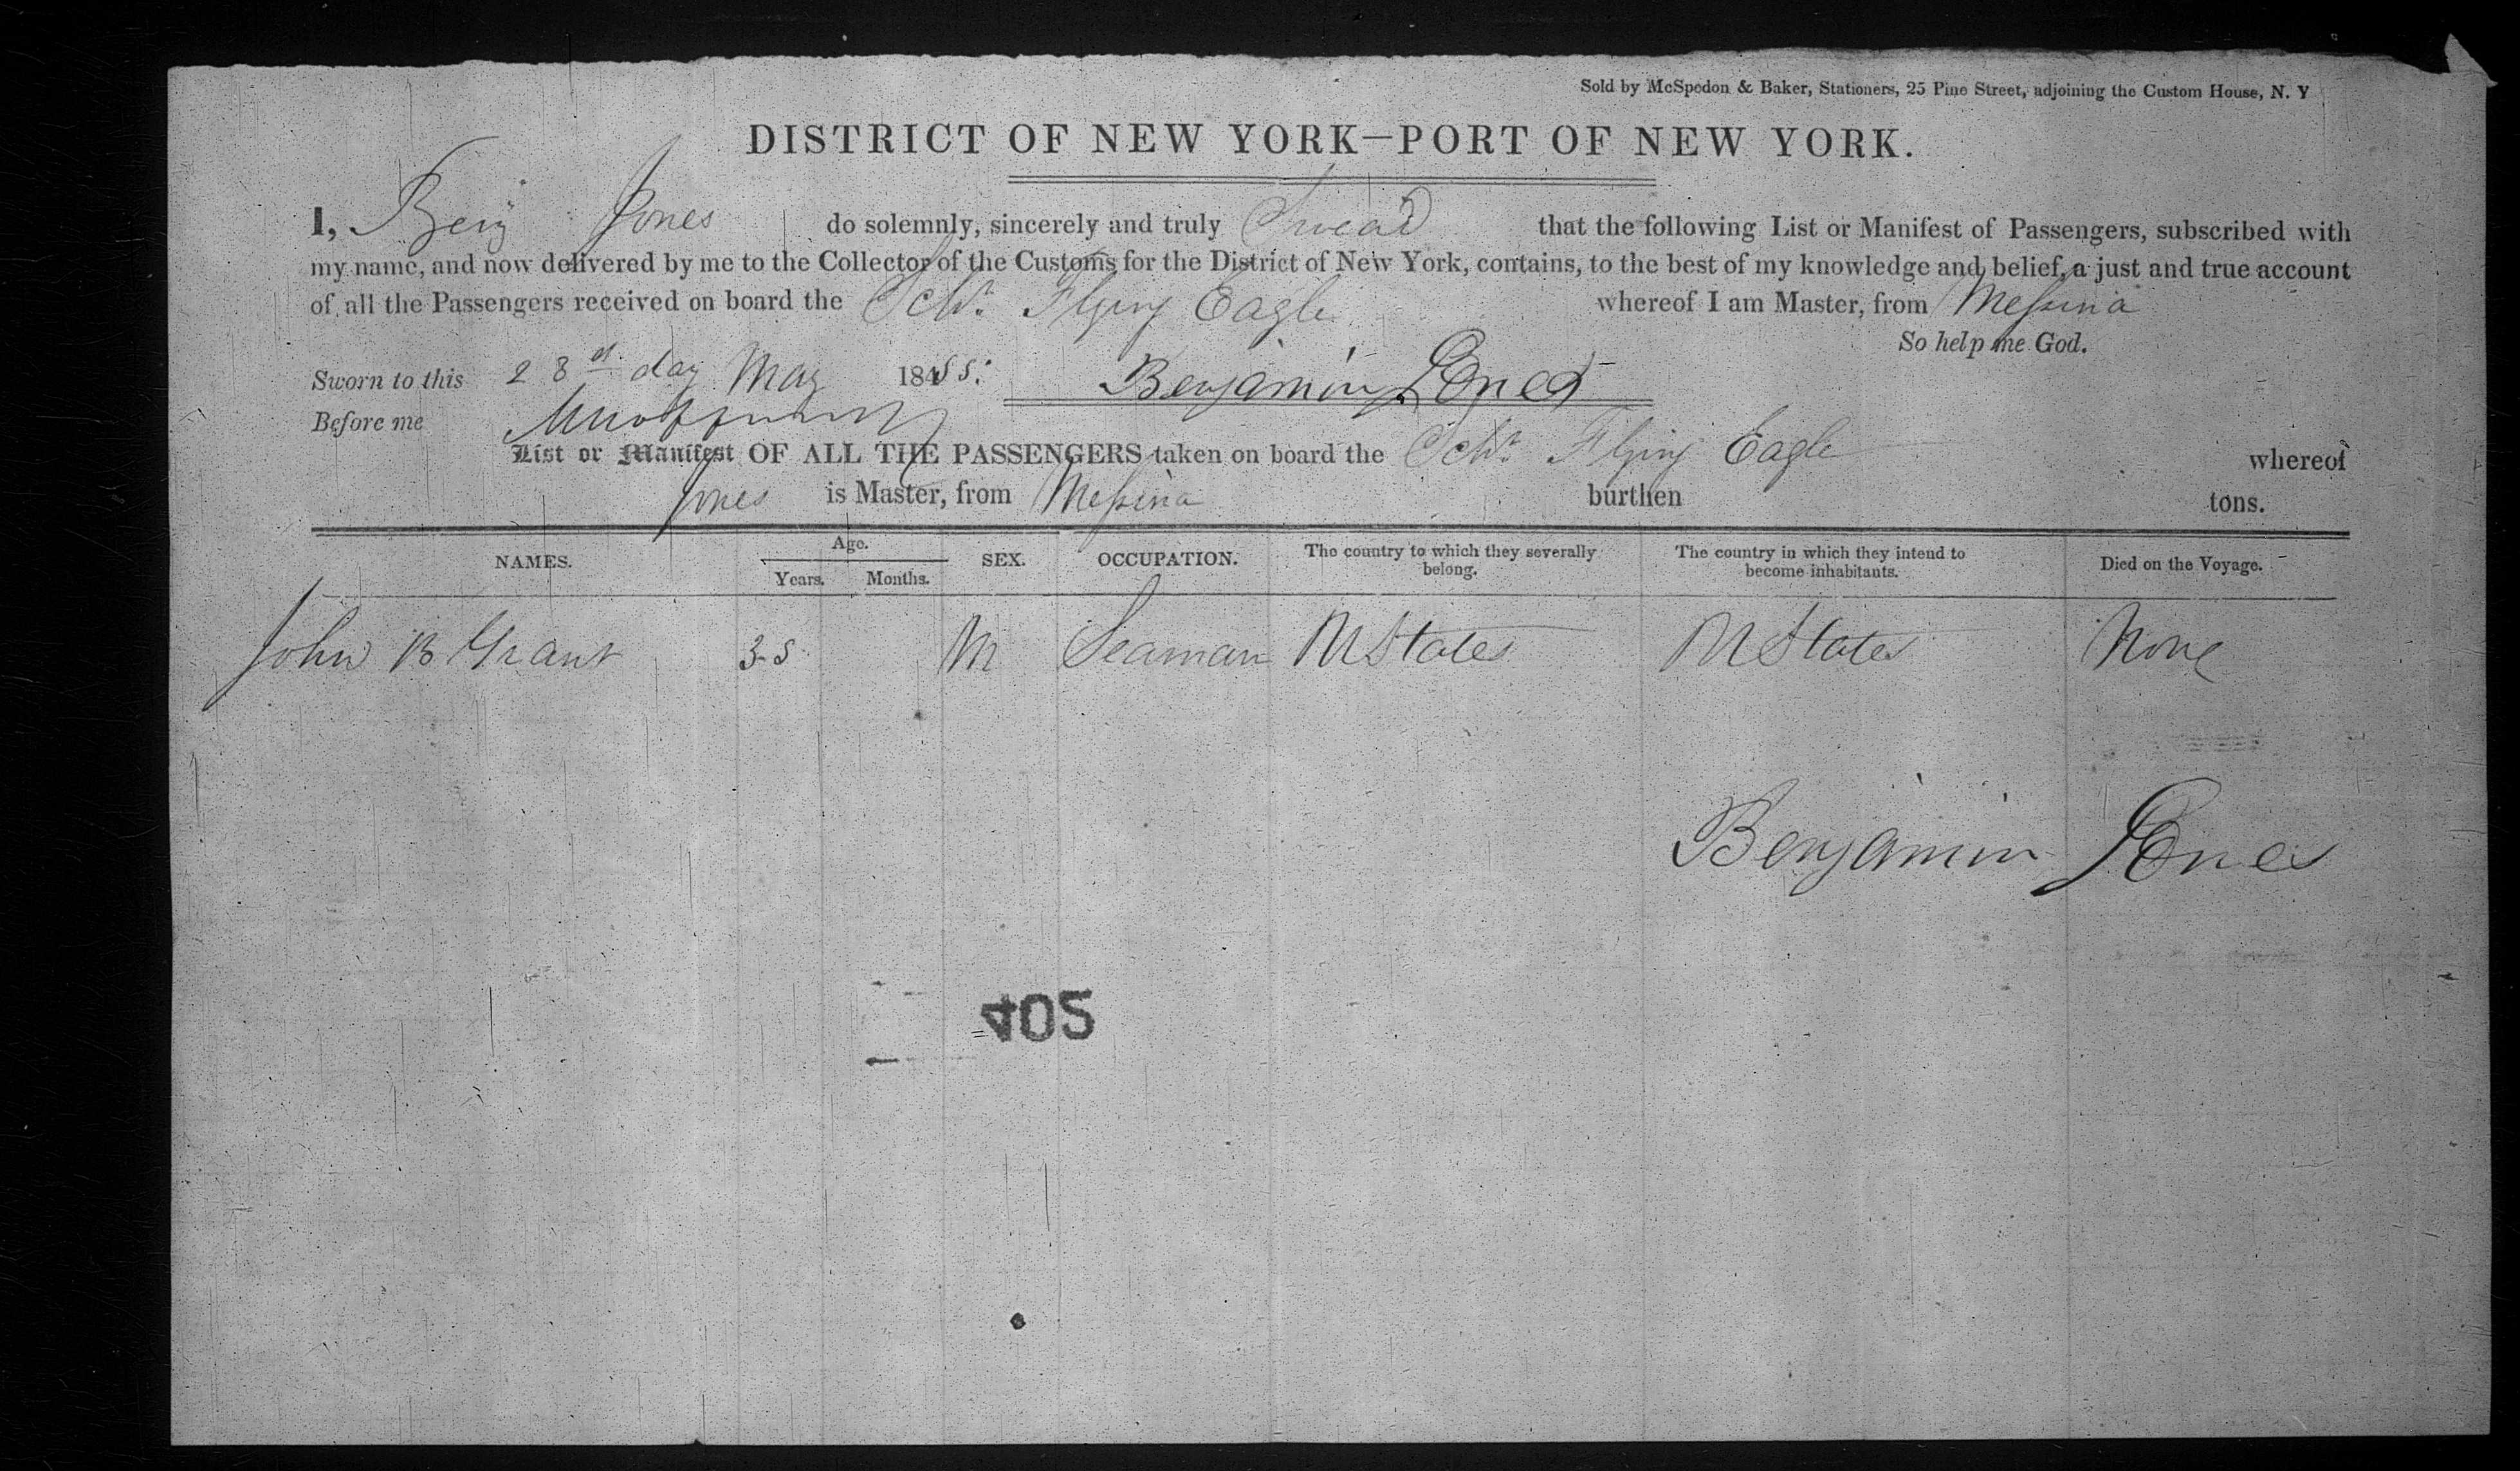 Sold by McSpedon & Baker, Stationers, 25 Pine Street, adjoining the Custom House, N. Y
DISTRICT OF NEW YORK—PORT OF NEW YORK.
I, Benj Jones do solemnly, sincerely and truly Swear that the following List or Manifest of Passengers, subscribed with
my name, and now delivered by me to the Collector of the Customs for the District of New York, contains, to the best of my knowledge and belief, a just and true account
of all the Passengers received on board the Schr Flying Eagle whereof I am Master, from Messina
So help me God.
Sworn to this 28st day May 1855. Benjamin Jones
Before me
List or Manifest OF ALL THE PASSENGERS taken on board the Schr Flying Eagle whereof
Jones is Master, from Messina burthen tons.
NAMES. Age. Years. Months. SEX. OCCUPATION. The country to which they severally belong. The country in which they intend to become inhabitants. Died on the Voyage.
John B Grant 35 M Seaman U States U States None
Benjamin Jones
405